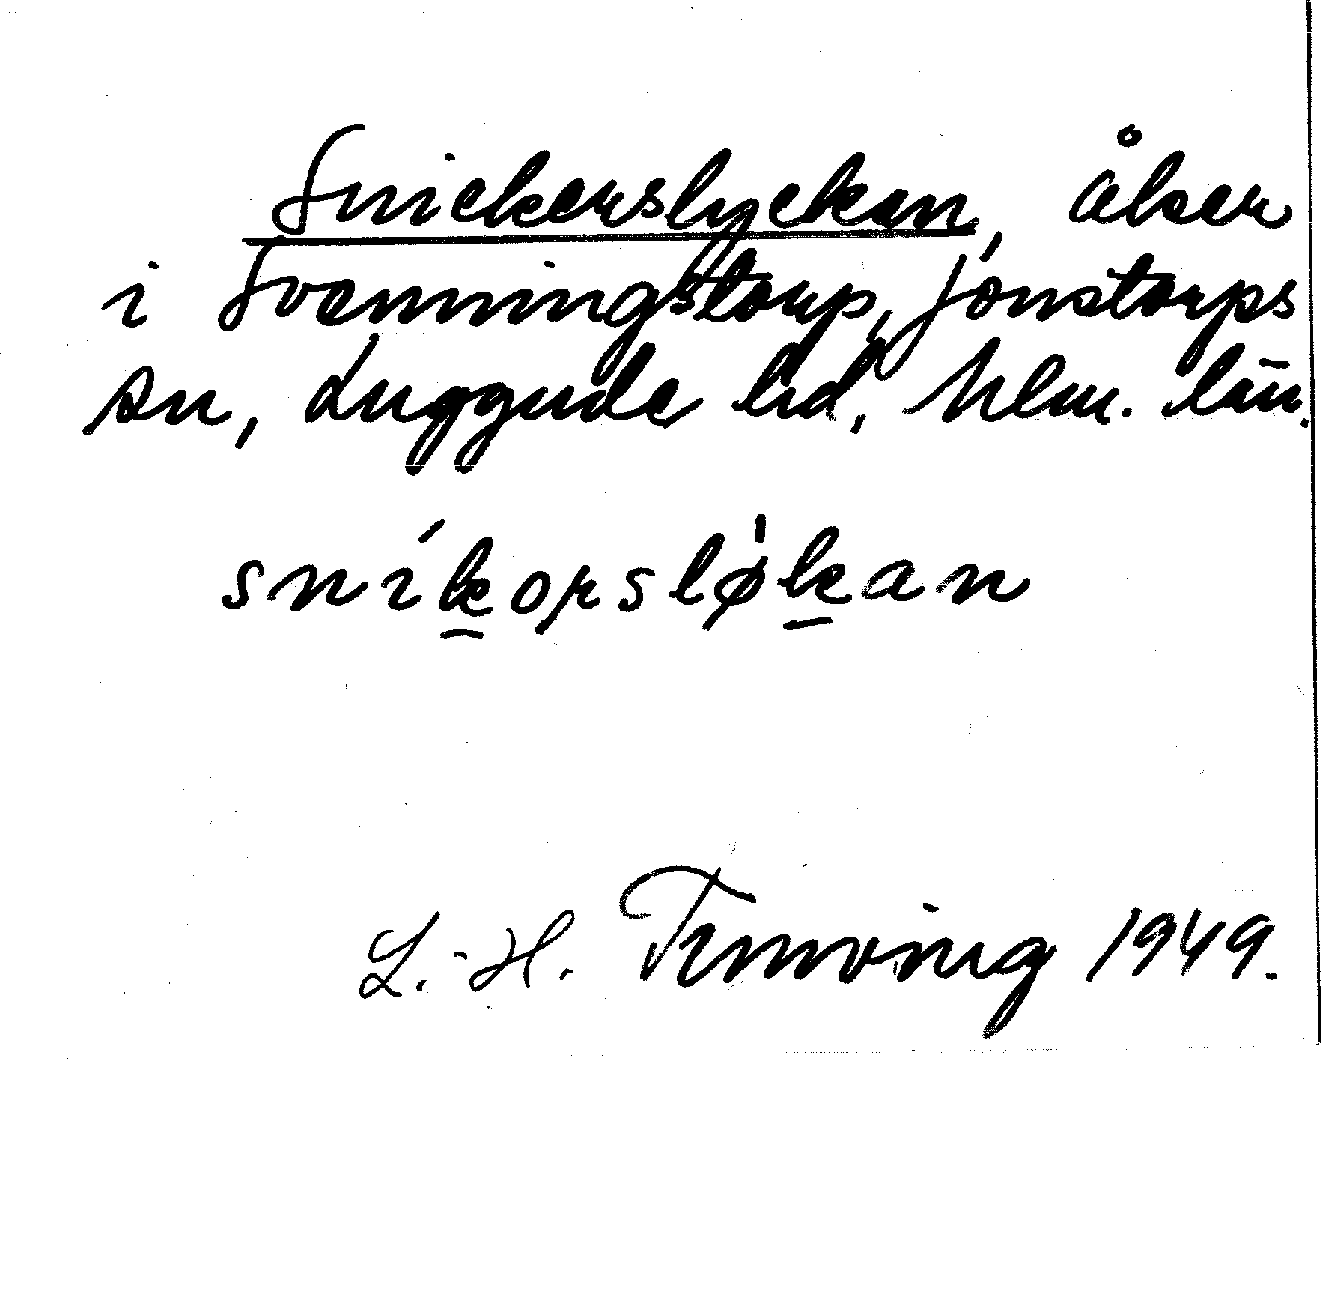 Snickerslyckan, åker
i Svenningstorp, Jonstorps
sn, Luggude hd, Mlm. län.
sníkorsløkan
L.-H. Ternving 1949.